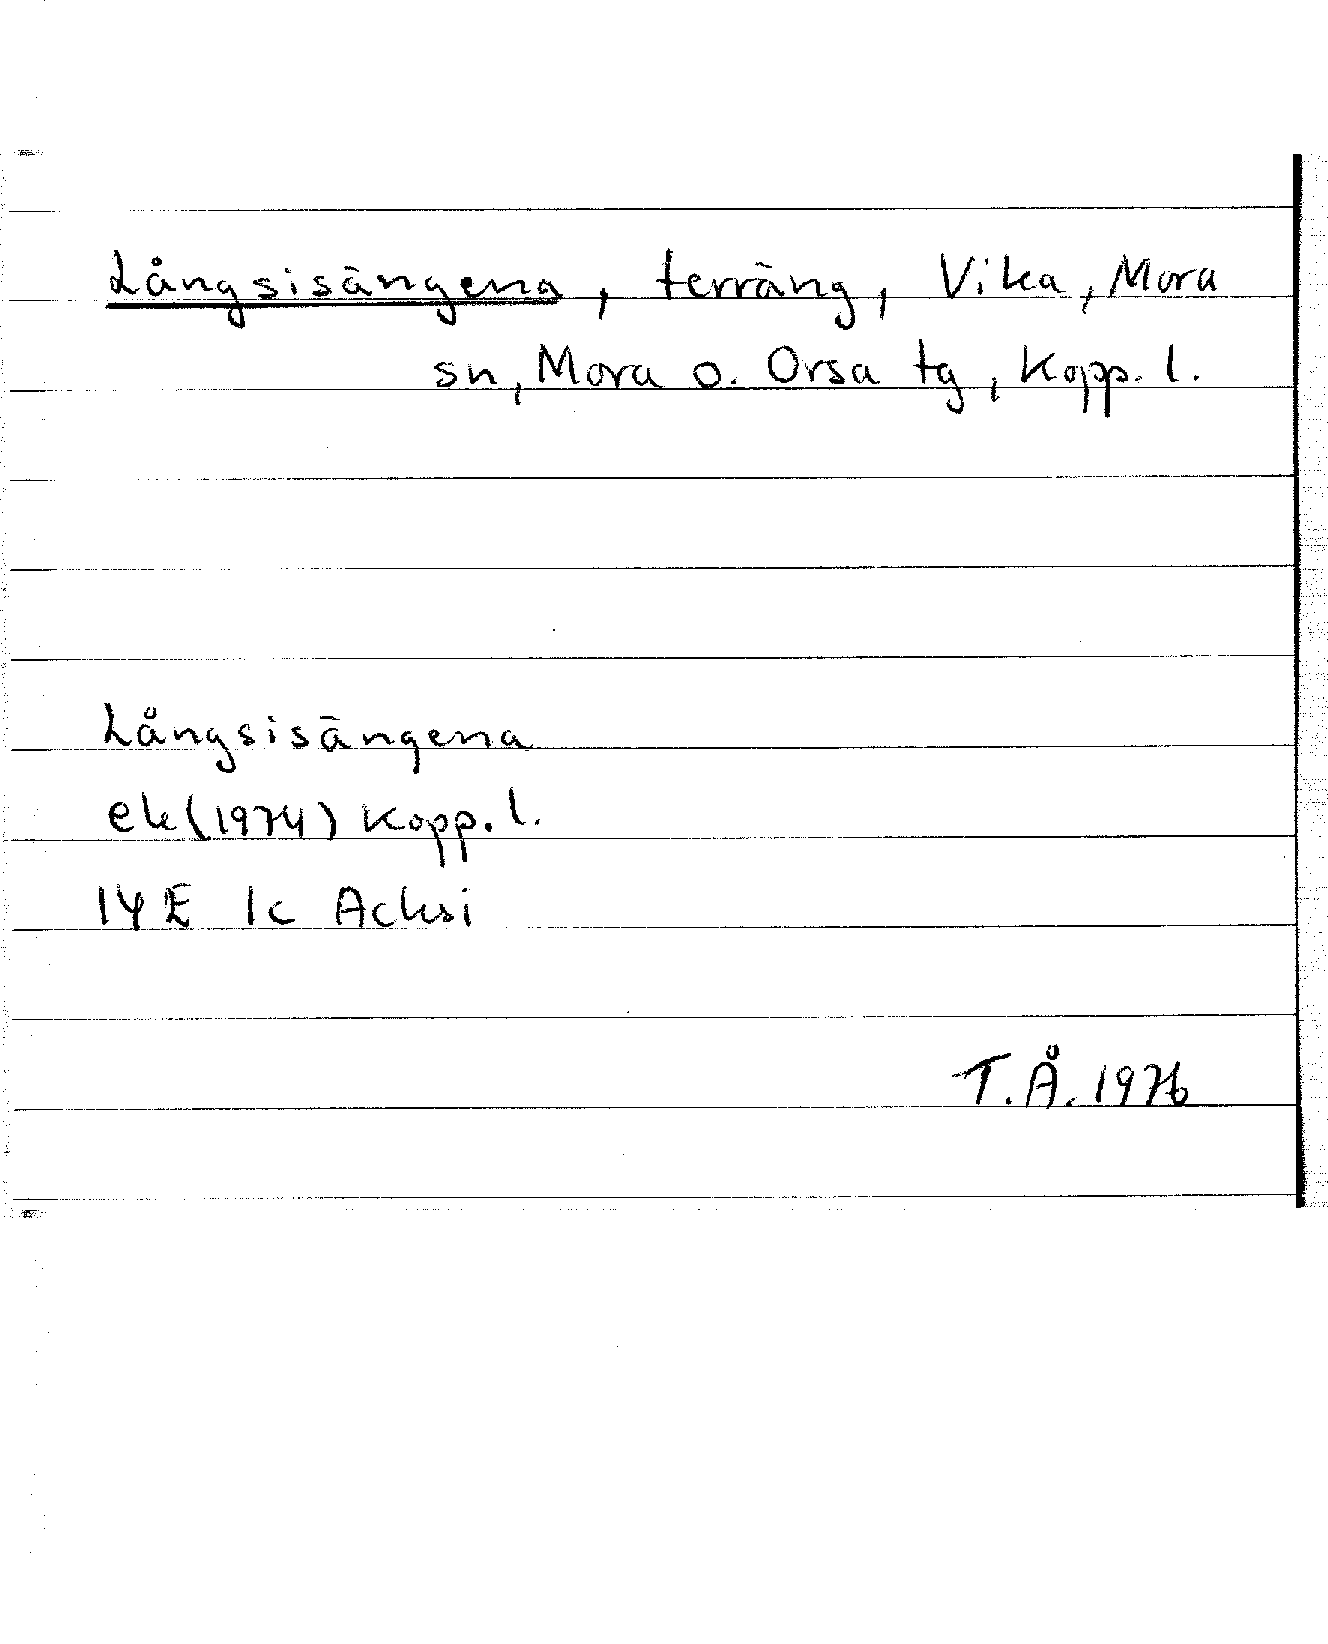 Långsisängena, terräng, Vika, Mora
sn, Mora o. Orsa tg, Kopp. l.
Långsisängena
ek (1974) Kopp. l.
14E 1c Acksi
T.Å. 1976